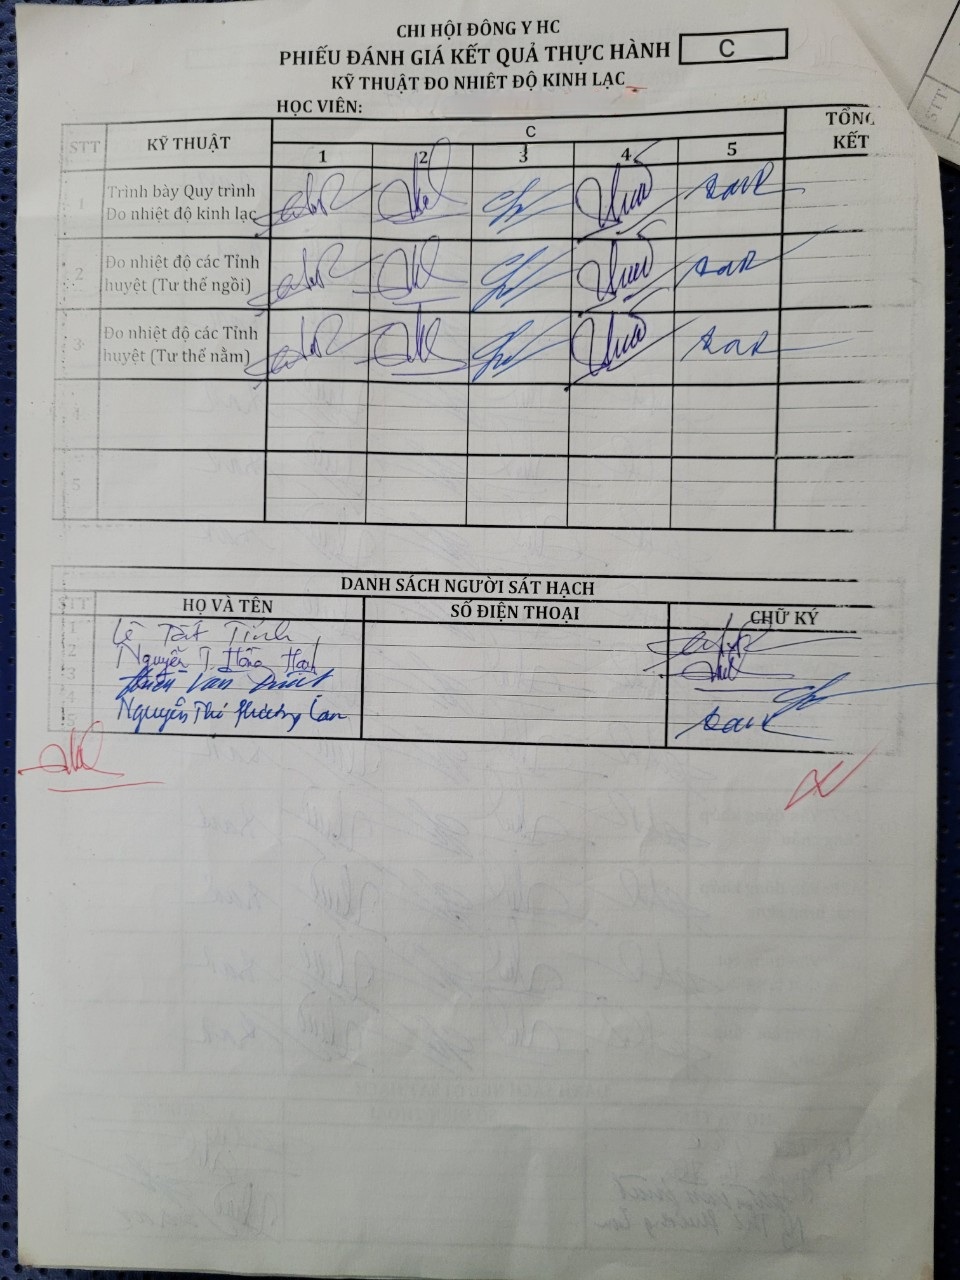 CHI HỘI ĐÔNG Y HC
PHIẾU ĐÁNH GIÁ KẾT QUẢ THỰC HÀNH C
KỸ THUẬT ĐO NHIỆT ĐỘ KINH LẠC
HỌC VIÊN:
STT KỸ THUẬT C TỔNG KẾT
1 2 3 4 5
1 Trình bày Quy trình
Đo nhiệt độ kinh lạc
2 Đo nhiệt độ các Tỉnh
huyệt (Tư thế ngồi)
3 Đo nhiệt độ các Tỉnh
huyệt (Tư thế nằm)
4
5
DANH SÁCH NGƯỜI SÁT HẠCH
STT HỌ VÀ TÊN SỐ ĐIỆN THOẠI CHỮ KÝ
1 Lê Tất Tính
2 Nguyễn T. Hồng Hạnh
3 Văn
4 Nguyễn Thị Phương Lan
5
STT